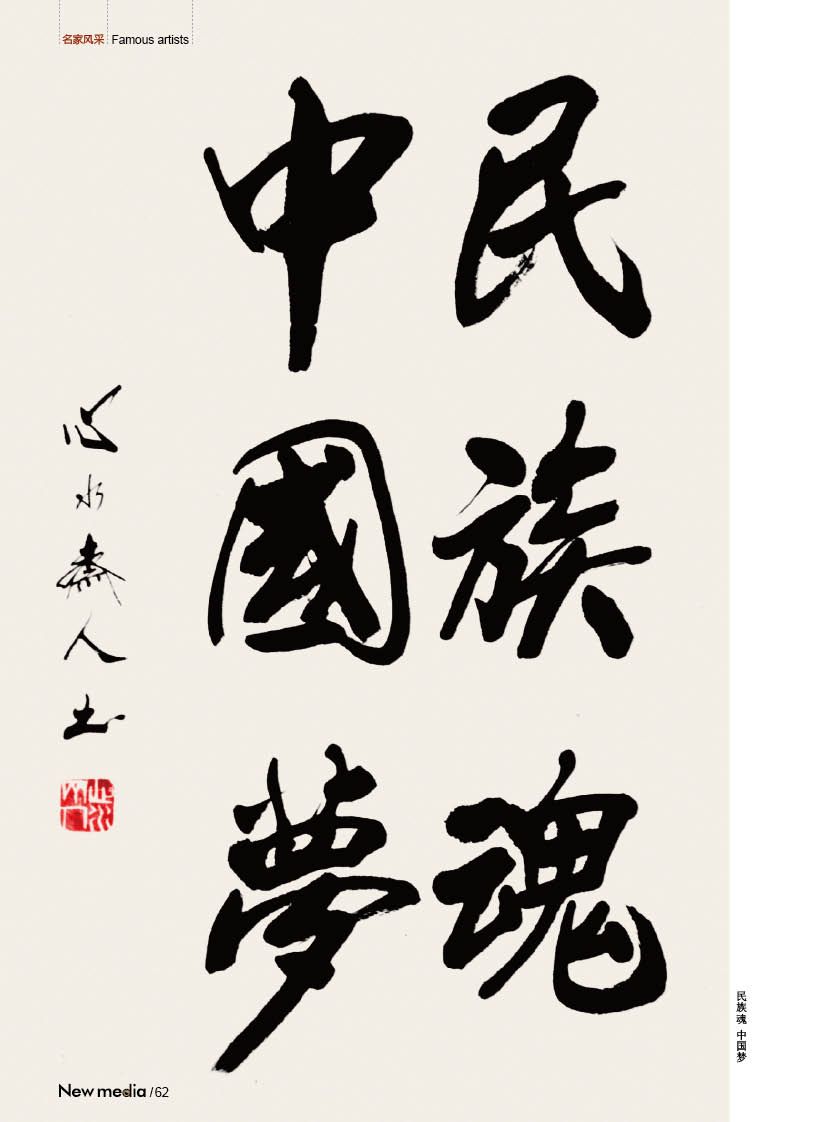 名家风采 Famous artists
民族魂
中國夢
心水斋人书
民族魂 中国梦
New media /62